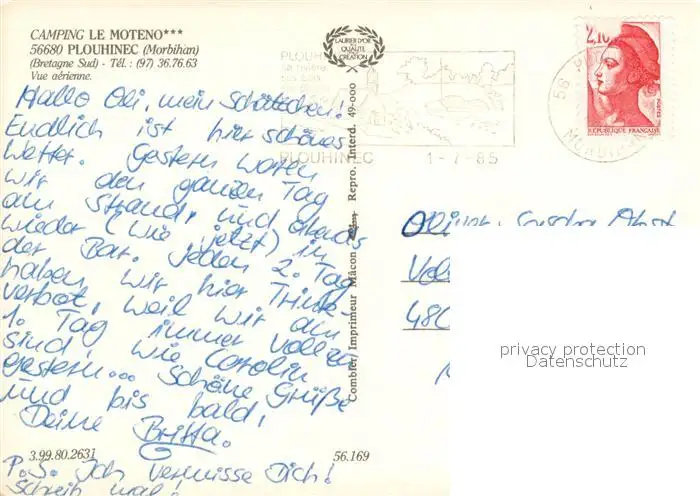 CAMPING LE MOTENO***
56680 PLOUHINEC (Morbihan)
(Bretagne Sud) - Tél. : (97) 36.76.63
Vue aérienne.
LAURIER D'OR
de la
QUALITÉ
de la
CRÉATION
PLOUH
sa rivière
PLOUHINEC
1-7-85
56
MORBIHAN
2,10
REPUBLIQUE FRANÇAISE
Hallo Oli, mein Schätzchen!
Endlich ist hier schönes
Wetter. Gestern waren
wir den ganzen Tag
am Strand, und abends
wieder (wie jetzt) in
der Bar. Jeden 2. Tag
haben wir hier Trink-
verbot, weil wir am
1. Tag immer voll zu
sind, wie Carolin
gestern... Schöne Grüße
und bis bald,
Deine Britta.
P.S. Ich vermisse Dich!
Schreib mal!
Combier Imprimeur Mâcon Repro. Interd. 49-000
Oliver
Vol
480
3.99.80.2631
56.169
privacy protection
Datenschutz